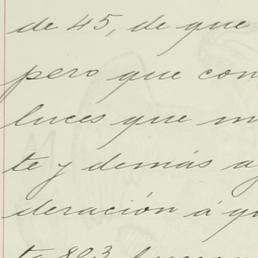 de 45, de que
pero que con
luces que m
te y demás a
deración á q